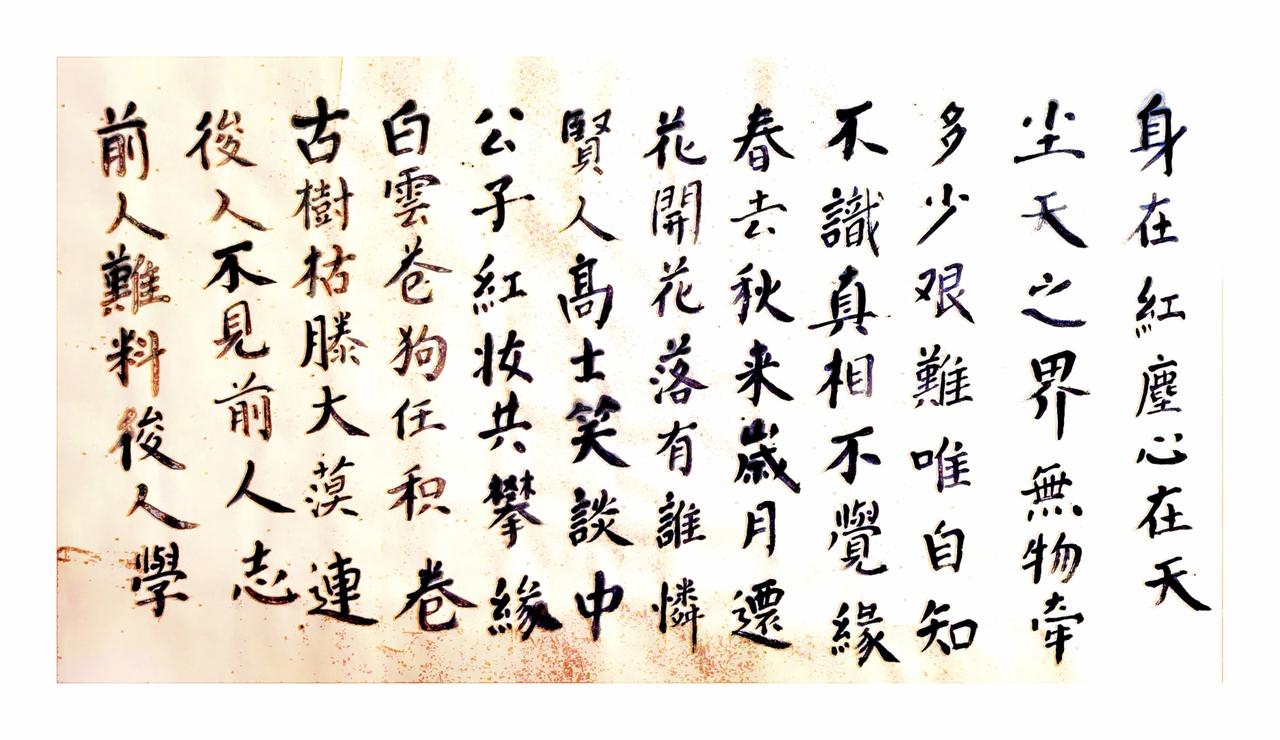 身在紅塵心在天
尘天之界無物牽
多少艰難唯自知
不識真相不覺緣
春去秋来歲月還
花開花落有誰憐
賢人高士笑談中
公子紅妝共攀緣
白雲苍狗任积卷
古樹枯滕大漠連
後人不見前人志
前人難料後人學